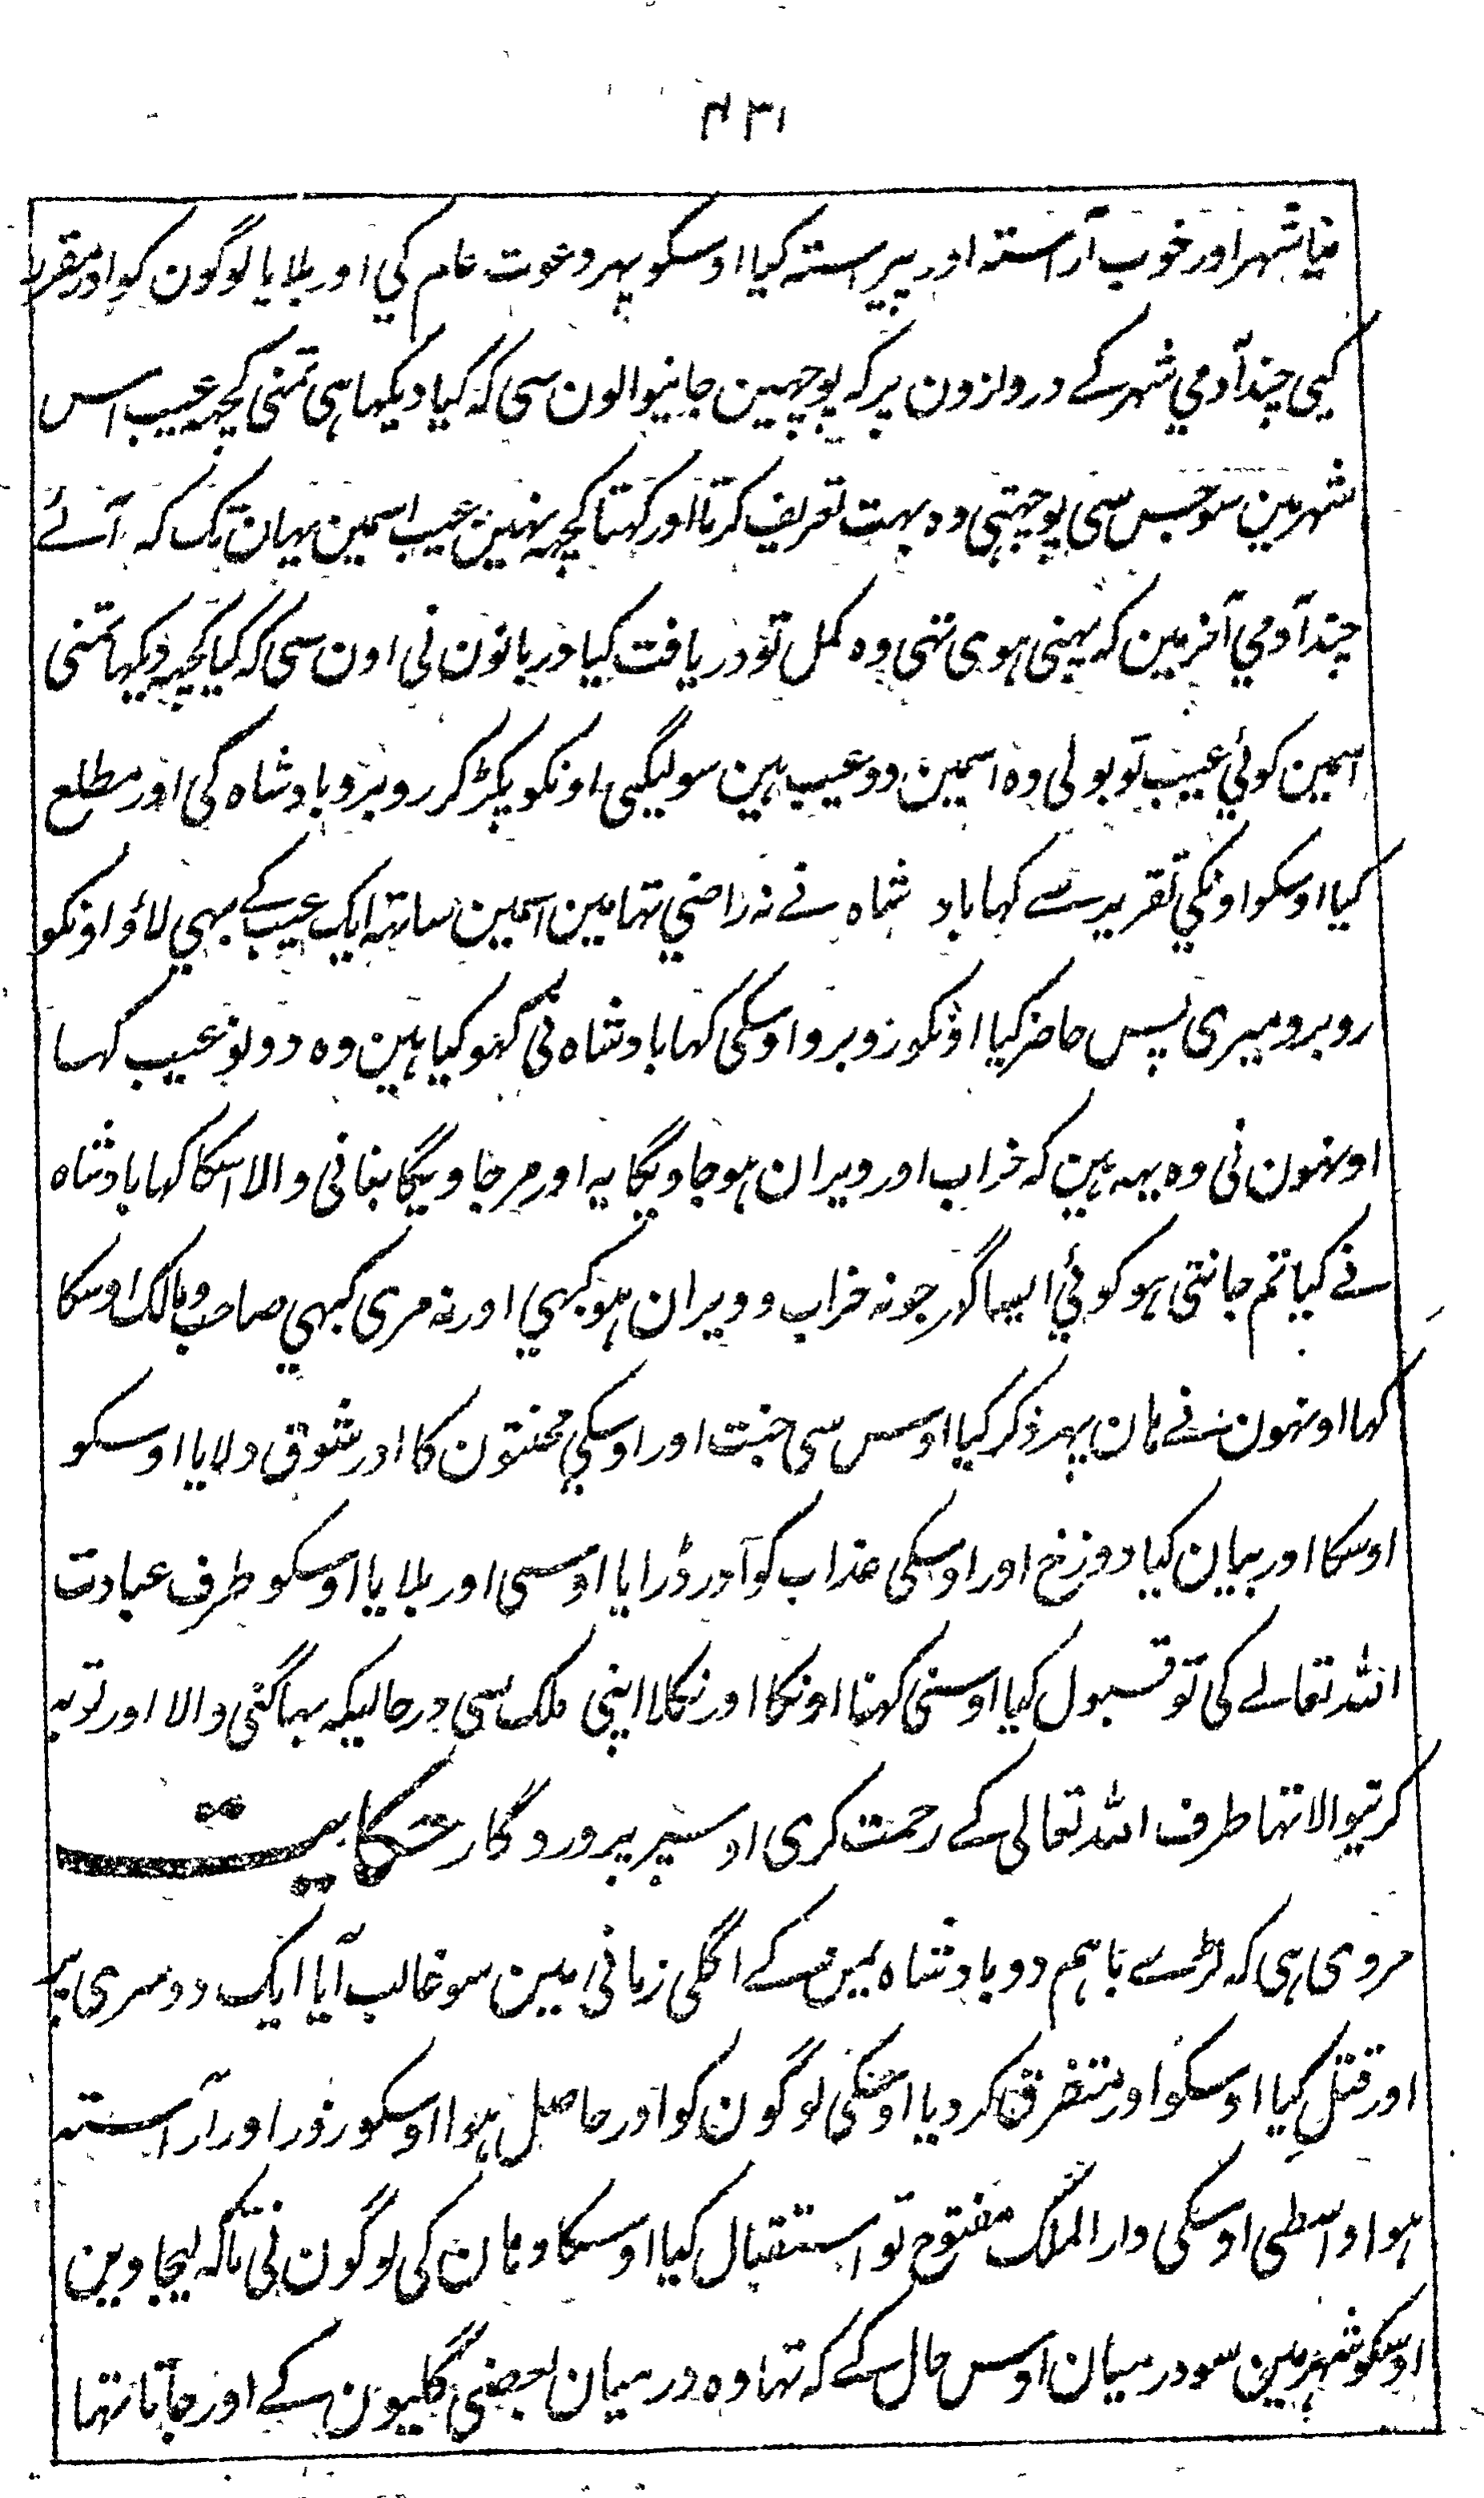 ۱۲۴
نیا شہر اور خوب آراستہ اور پیراستہ کیا اوسکو پہر دعوت عام کي اور بلایا لوگون کو اور مقرر
کیی چند آدمي شہر کے دروازون پر کہ پوچہین جانیوالون سی کہ کیا دیکہا ہی تمنی کچہہ عیب اس
شہر مین سو جس سی پوچہتی وہ بہت تعریف کرتا اور کہتا کچہہ نہین عیب اسمین یہان تک کہ آئے
چند آدمي آخر مین کہ پہنی ہوی تہی وہ کمل تو دریافت کیا دربانون نی اون سی کہ کیا کچہہ دیکہا تمنی
اسمین کوئي عیب تو بولی وہ اسمین دو عیب ہین سو لیگیی اونکو پکڑ کر روبرو بادشاہ کی اور مطلع
کیا اوسکو اونکي تقریر سے کہا بادشاہ نے نہ راضي تہا مین اسمین ساتہہ ایک عیب کے بہي لاؤ اونکو
روبرو میری پس حاضر کیا اونکو روبرو اوسکی کہا بادشاہ نی کہو کیا ہین وہ دونو عیب کہا
اونہون نی وہ یہہ ہین کہ خراب اور ویران ہو جاویگا یہ اور مرجاویگا بنانی والا اسکا کہا بادشاہ
نے کیا تم جانتی ہو کوئي ایسا گہر جو نہ خراب و ویران ہو کبہي اور نہ مری کبہي صاحب و مالک اوسکا
کہا اونہون نے ہان پہر ذکر کیا اوس سی جنت اور اوسکي محنتون کا اور شوق دلایا اوسکو
اوسکا اور بیان کیا دوزخ اور اوسکی عذاب کو اور ڈرایا اوسی اور بلایا اوسکو طرف عبادت
اللہ تعالے کی تو قبول کیا اوسنی کہنا اونکا اور نکلا اپنی ملک سی درحالیکہ بہاگنی والا اور توبہ
کرنیوالا تہا طرف اللہ تعالی کے رحمت کری اوسپر پروردگار حکایت
مروی ہی کہ لڑے باہم دو بادشاہ یمن کے اگلی زمانی مین سو غالب آیا ایک دوسری پر
اور قتل کیا اوسکو اور متفرق کر دیا اوسکی لوگون کو اور حاصل ہوا اوسکو زور اور آراستہ
ہوا واسطی اوسکی دار الملک مفتوح تو استقبال کیا اوسکا وہان کی لوگون نی تاکہ لیجاوین
اوسکو شہر مین سو درمیان اوس حال کے کہ تہا وہ درمیان بعضي گلیون کے اور جاتا تہا